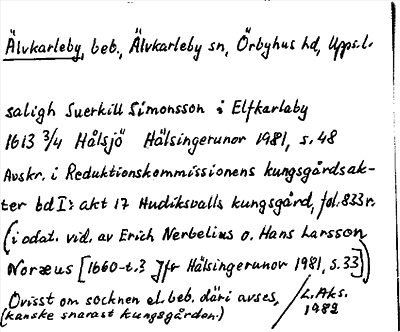 Älvkarleby, beb., Älvkarleby sn, Örbyhus hd, Upps.l.
saligh Suerkill Simonsson i Elfkarlaby
1613 3/4 Hålsjö Hälsingerunor 1981, s. 48
Avskr. i Reduktionskommissionens kungsgårdsak-
ter bd I: akt 17 Hudiksvalls kungsgård, fol. 833 r.
(i odat. vid. av Erich Nerbelius o. Hans Larsson
Noræus [1660-t.? Jfr Hälsingerunor 1981, s. 33])
Ovisst om socknen el. beb. däri avses,
(kanske snarast kungsgården.)
L. Aks.
1982